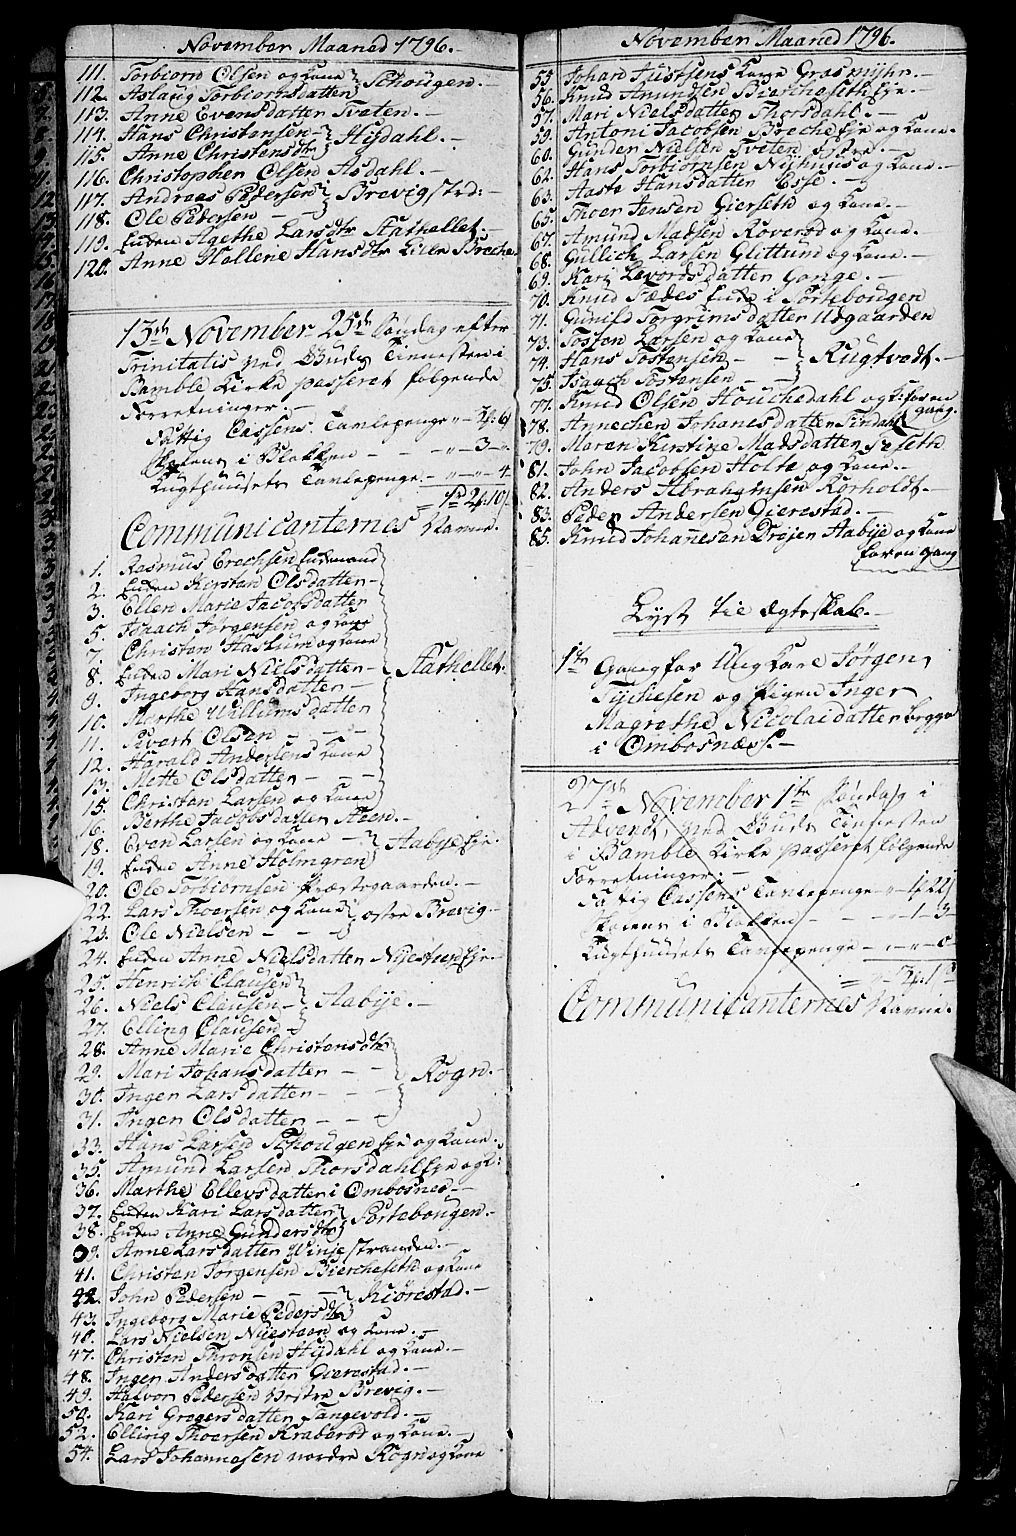 November Maaned 1796.
111. Torbiorn Olsen og Kone
112. Aslaug Torbiornsdatter Schougen.
113. Anne Evensdatter Tveten.
114. Hans Christensen
115. Anne Christensdtr Hydahl.
116. Christopher Olsen Asdahl.
117. Andreas Pedersen Brevig
118. Ole Pedersen
119. Enken Agethe Larsdtr Stathellet.
120. Anne Hollene Hansdtr Lille Breche
13de November 25de Søndag efter
Trinitatis ved Guds Tienesten i
Bamble Kirke passeret følgende
Forretninger.
Fattig Cassens Tavlepenge
Skolens i Blokken 3
Tugthuusets Tavlepenge 4
Communicanternes Navne.
1. Rasmus Erechsen Enkemand
2. Enken Kirsten Olsdatter
3. Ellen Marie Jacobsdatter
5. Isaach Jørgensen og Kone
7. Christen Aaslum og Kone
8. Enken Mari Nielsdatter Stathellet.
9. Ingeborg Hansdatter
10. Marthe Willumsdatter
11. Sivert Olsen
12. Harald Andersens Kone
13. Mette Olsdatter
15. Christen Larsen og Kone
16. Berthe Jacobsdatter Steen.
18. Even Larsen og Kone Aabye Eje.
19. Enken Anne Holmgren
20. Ole Torbiornsen Præstegaarden.
22. Lars Thoersen og Kone østre Brevig.
23. Ole Nielsen
24. Enken Anne Nielsdatter Nysteen Eje.
25. Henrich Clausen
26. Niels Clausen Aabye.
27. Elling Clausen
28. Anne Marie Christensdtr
29. Mari Johansdatter Rogn.
30. Inger Larsdatter
31. Inger Olsdatter
33. Hans Larsen Schougen Eje og Kone.
35. Amund Larsen Thorsdahl Eje og K:
36. Marthe Ellevsdatter i Ombosnes
37. Enken Kari Larsdatter Sortebougen.
38. Enken Anne Gundersdtr
39. Anne Larsdatter Winjestranden.
41. Christen Jørgensen Biercheseth og Kone
42. John Pedersen Kiørestad.
43. Ingeborg Marie Pedersdtr
Lars Nielsen Nyesteen og Kone.
47. Christen Thronsen Hydahl og Kone.
48. Inger Andersdatter Gierestad.
49. Halvor Pedersen Vestre Brevig.
50. Kari Gregersdatter Tangevold.
52. Elling Thoersen Kraberød og Kone.
54. Lars Johannesen nordre Rogn og Kone
November Maaned 1796.
55. Johan Justsens Kone Grasmyhr.
56. Knud Amundsen Biercheseth Eje.
57. Mari Nielsdatter Thorsdahl.
59. Antoni Jacobsen Breche Eje og Kone.
60. Gunder Nielsen Tveten østre.
62. Hans Torbiornsen Nyhuus og Kone.
63. Aaste Hansdatter Esse.
65. Thoer Jensen Gierseth og Kone.
67. Amund Madsen Roverod og Kone.
68. Gullich Larsen Glittund og Kone.
69. Kari Levordsdatter Gonge.
70. Knud Sædes Enke i Sortebougen
71. Gunild Torgrimsdatter Udgaarden
73. Tosten Larsen og Kone
74. Hans Tostensen Rugtvedt.
75. Isaach Tostensen
77. Knud Olsen Houchedahl og K: for en gang.
78. Annechen Johanesdatter Findahl
79. Maren Kirstine Madsdatter Eseth
81. John Jacobsen Holte og Kone.
82. Anders Abrahamsen Rørholdt.
83. Peder Andersen Gierestad.
85. Knud Johanesen Drøjer Aabye og Kone
for en gang
Lyst til Ægteskab.
1te Gang for Ung Karl Jørgen
Tychesen og Pigen Inger
Magrethe Nicolaidatter begge
i Ombosnæs.
27de November 1te Søndag i
Advendt, ved Guds Tienesten
i Bamble Kirke passeret følgende
Forretninger:
Fattig Cassens Tavlepenge
Skolens i Blokken
Tugthuusets Tavlepenge
Communicanternes Navne.